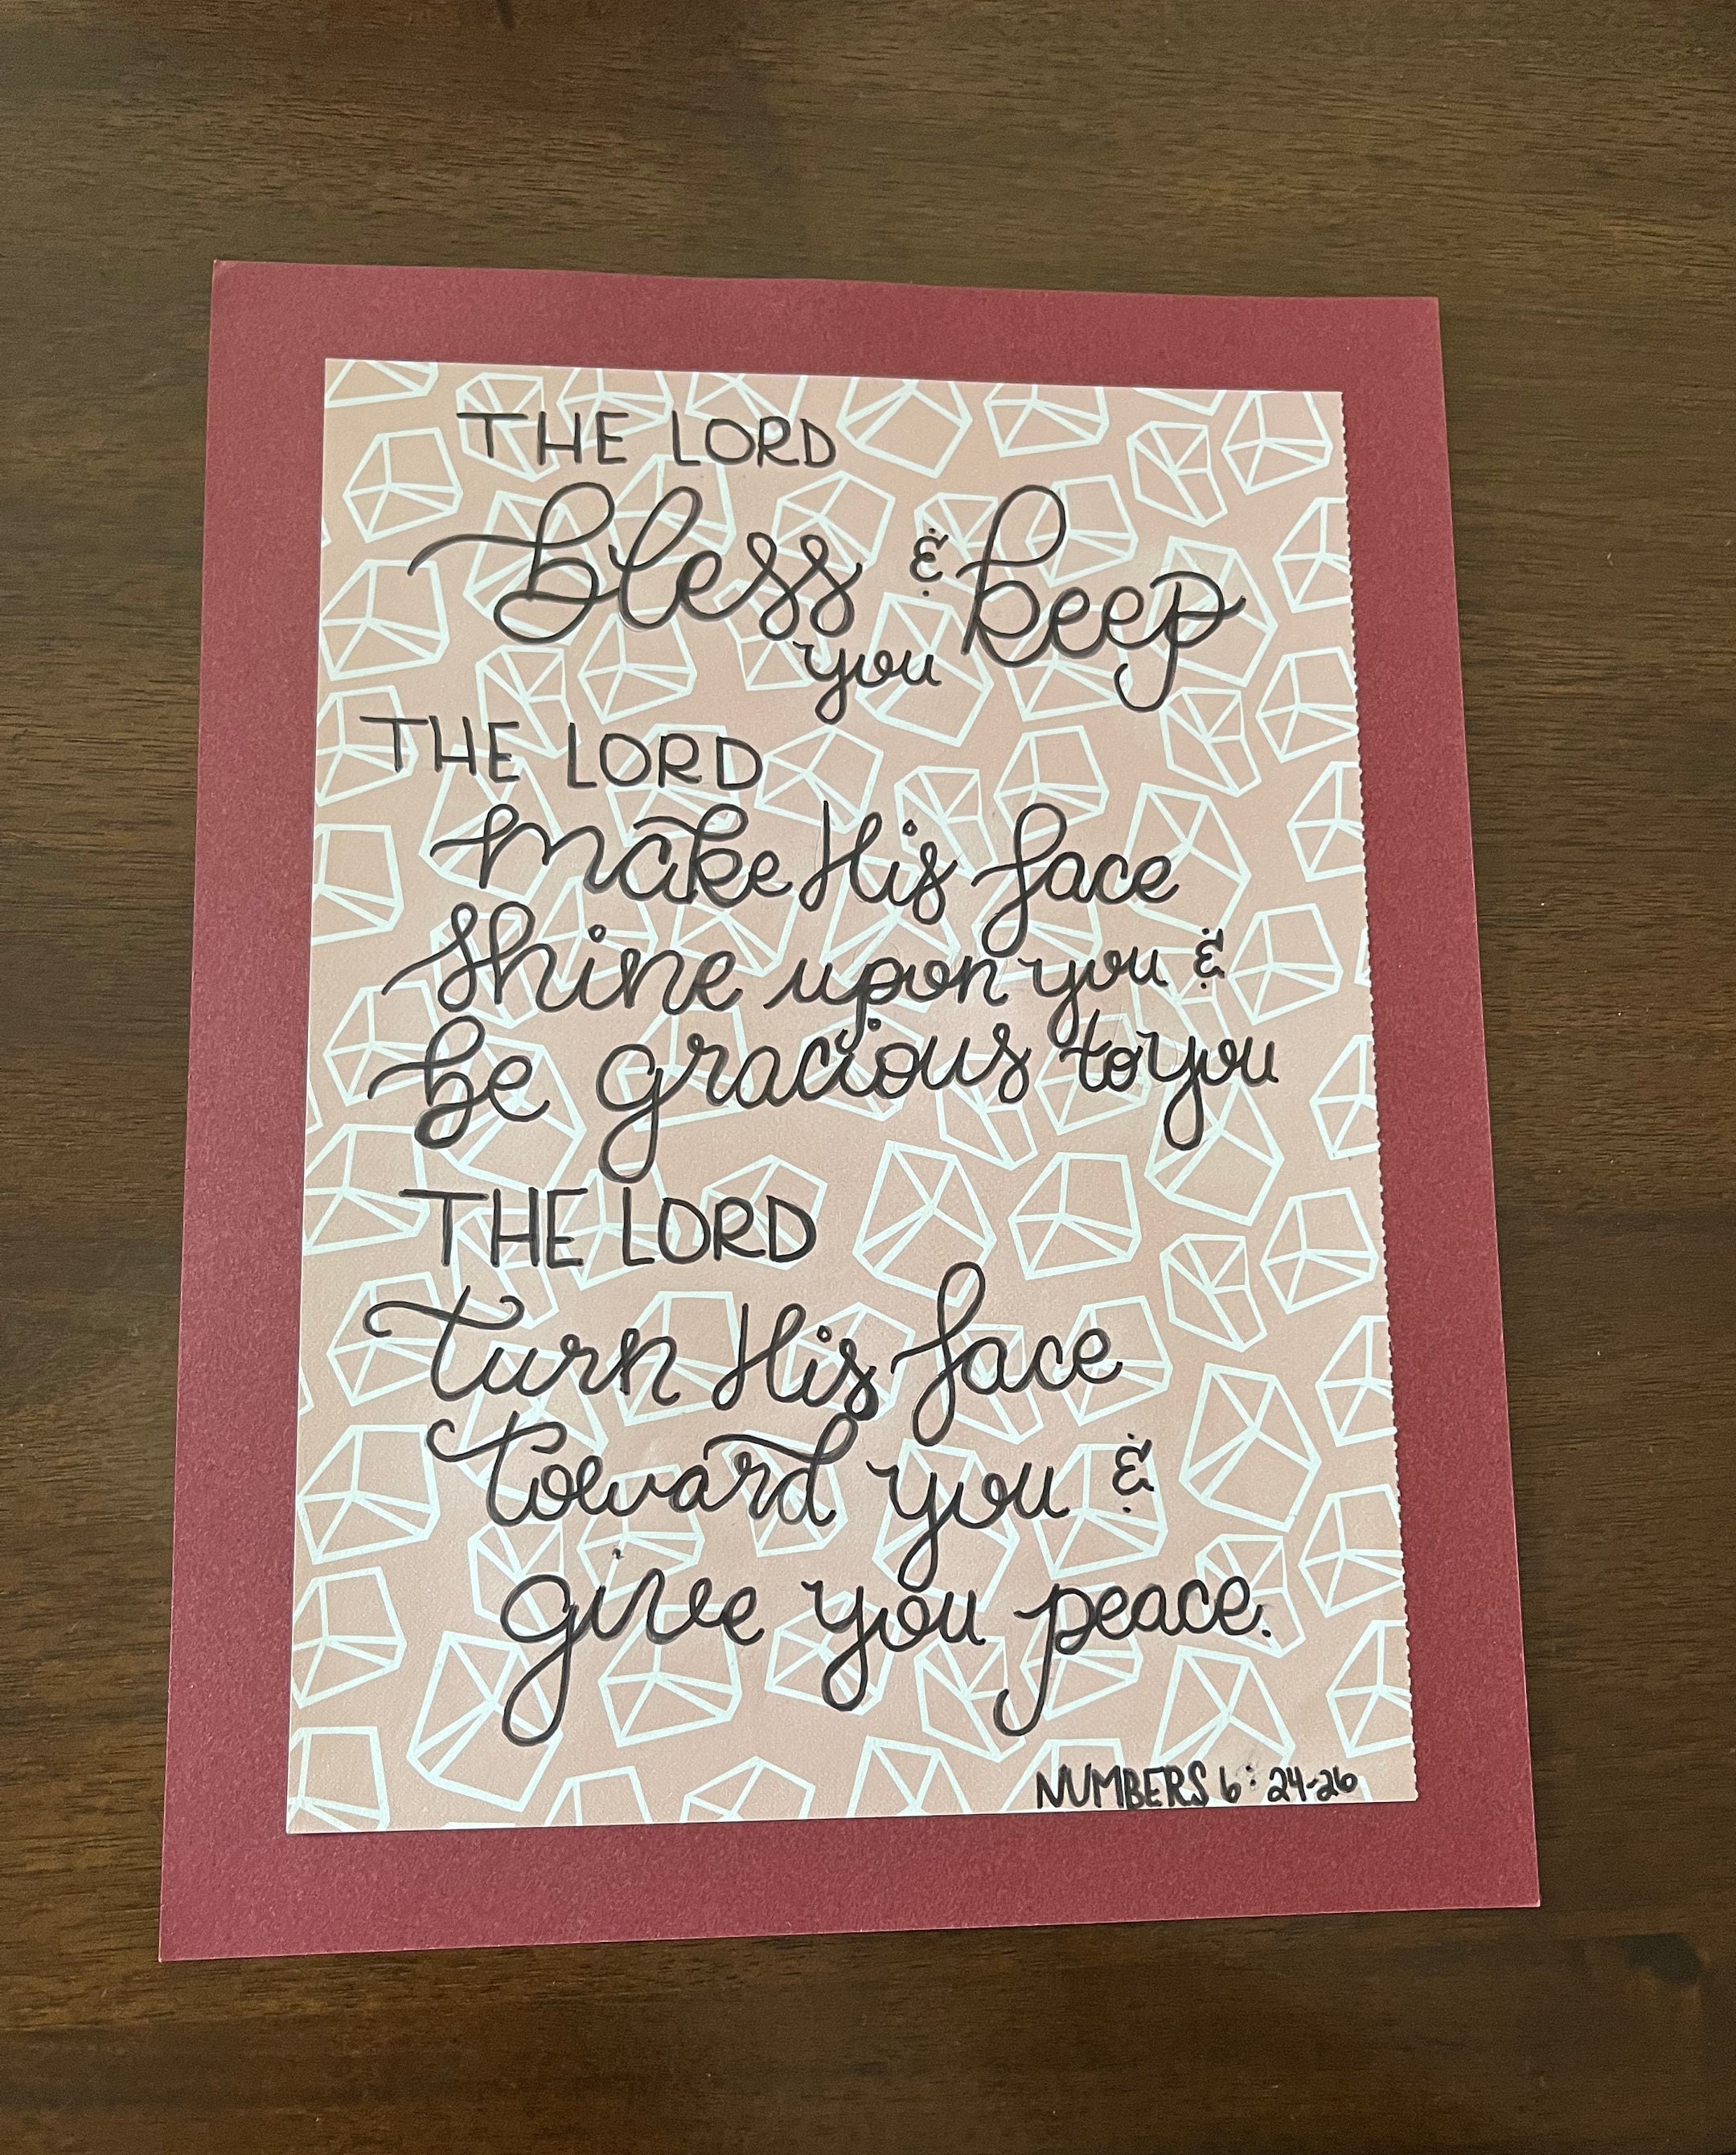 THE LORD
bless & keep
you
THE LORD
make His face
shine upon you &
be gracious to you
THE LORD
turn His face
toward you &
give you peace.
NUMBERS 6:24-26